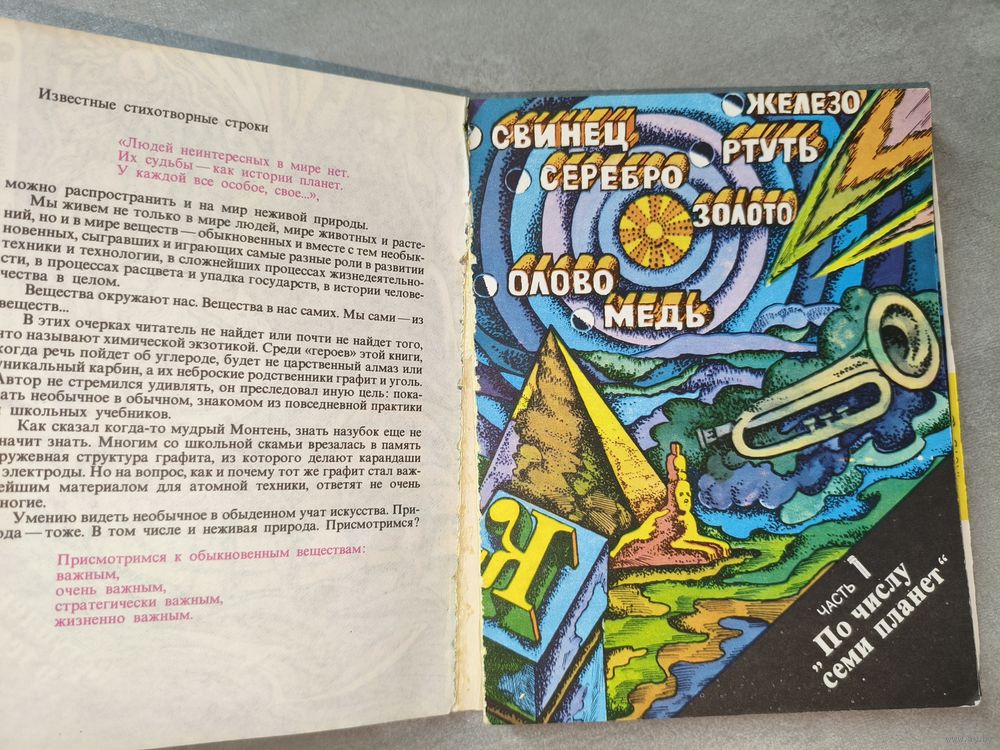 Известные стихотворные строки
«Людей неинтересных в мире нет.
Их судьбы — как истории планет.
У каждой все особое, свое...»,
можно распространить и на мир неживой природы.
Мы живем не только в мире людей, мире животных и расте-
ний, но и в мире веществ — обыкновенных и вместе с тем необык-
новенных, сыгравших и играющих самые разные роли в развитии
техники и технологии, в сложнейших процессах жизнедеятельно-
сти, в процессах расцвета и упадка государств, в истории челове-
чества в целом.
Вещества окружают нас. Вещества в нас самих. Мы сами — из
веществ...
В этих очерках читатель не найдет или почти не найдет того,
что называют химической экзотикой. Среди «героев» этой книги,
когда речь пойдет об углероде, будет не царственный алмаз или
уникальный карбин, а их неброские родственники графит и уголь.
Автор не стремился удивлять, он преследовал иную цель: пока-
ать необычное в обычном, знакомом из повседневной практики
школьных учебников.
Как сказал когда-то мудрый Монтень, знать назубок еще не
начит знать. Многим со школьной скамьи врезалась в память
ружевная структура графита, из которого делают карандаши
электроды. Но на вопрос, как и почему тот же графит стал важ-
ейшим материалом для атомной техники, ответят не очень
ногие.
Умению видеть необычное в обыденном учат искусства. При-
ода — тоже. В том числе и неживая природа. Присмотримся?
Присмотримся к обыкновенным веществам:
важным,
очень важным,
стратегически важным,
жизненно важным.
ЖЕЛЕЗО
СВИНЕЦ
РТУТЬ
СЕРЕБРО
ЗОЛОТО
ОЛОВО
МЕДЬ
Я
ЧАСТЬ 1
„По числу
семи планет“